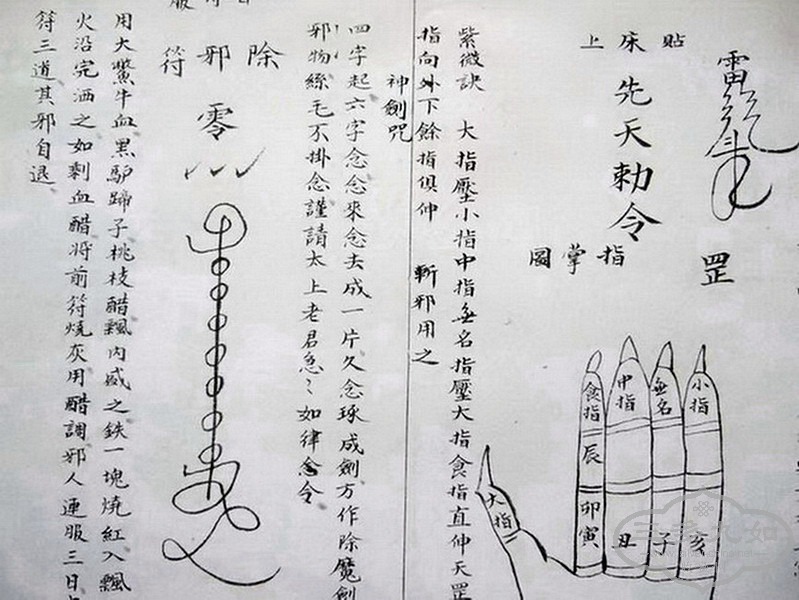 貼床上
先天勅令
罡
指掌圖
小指
無名
中指
食指
大指
辰
卯
寅
丑
子
亥
紫微訣 大指壓小指中指無名指壓大指食指直伸天罡
指向外下餘指俱伸 斬邪用之
神劍咒
四字起六字念念來念去成一片久念琢成劍方作除魔劍
邪物絲毛不掛念謹請太上老君急〻如律令
除邪符
零
用大鱉牛血黑驢蹄子桃枝醋瓢內盛之鉄一塊燒紅入瓢
火沿完洒之如剩血醋將前符燒灰用醋調邪人連服三日
符三道其邪自退